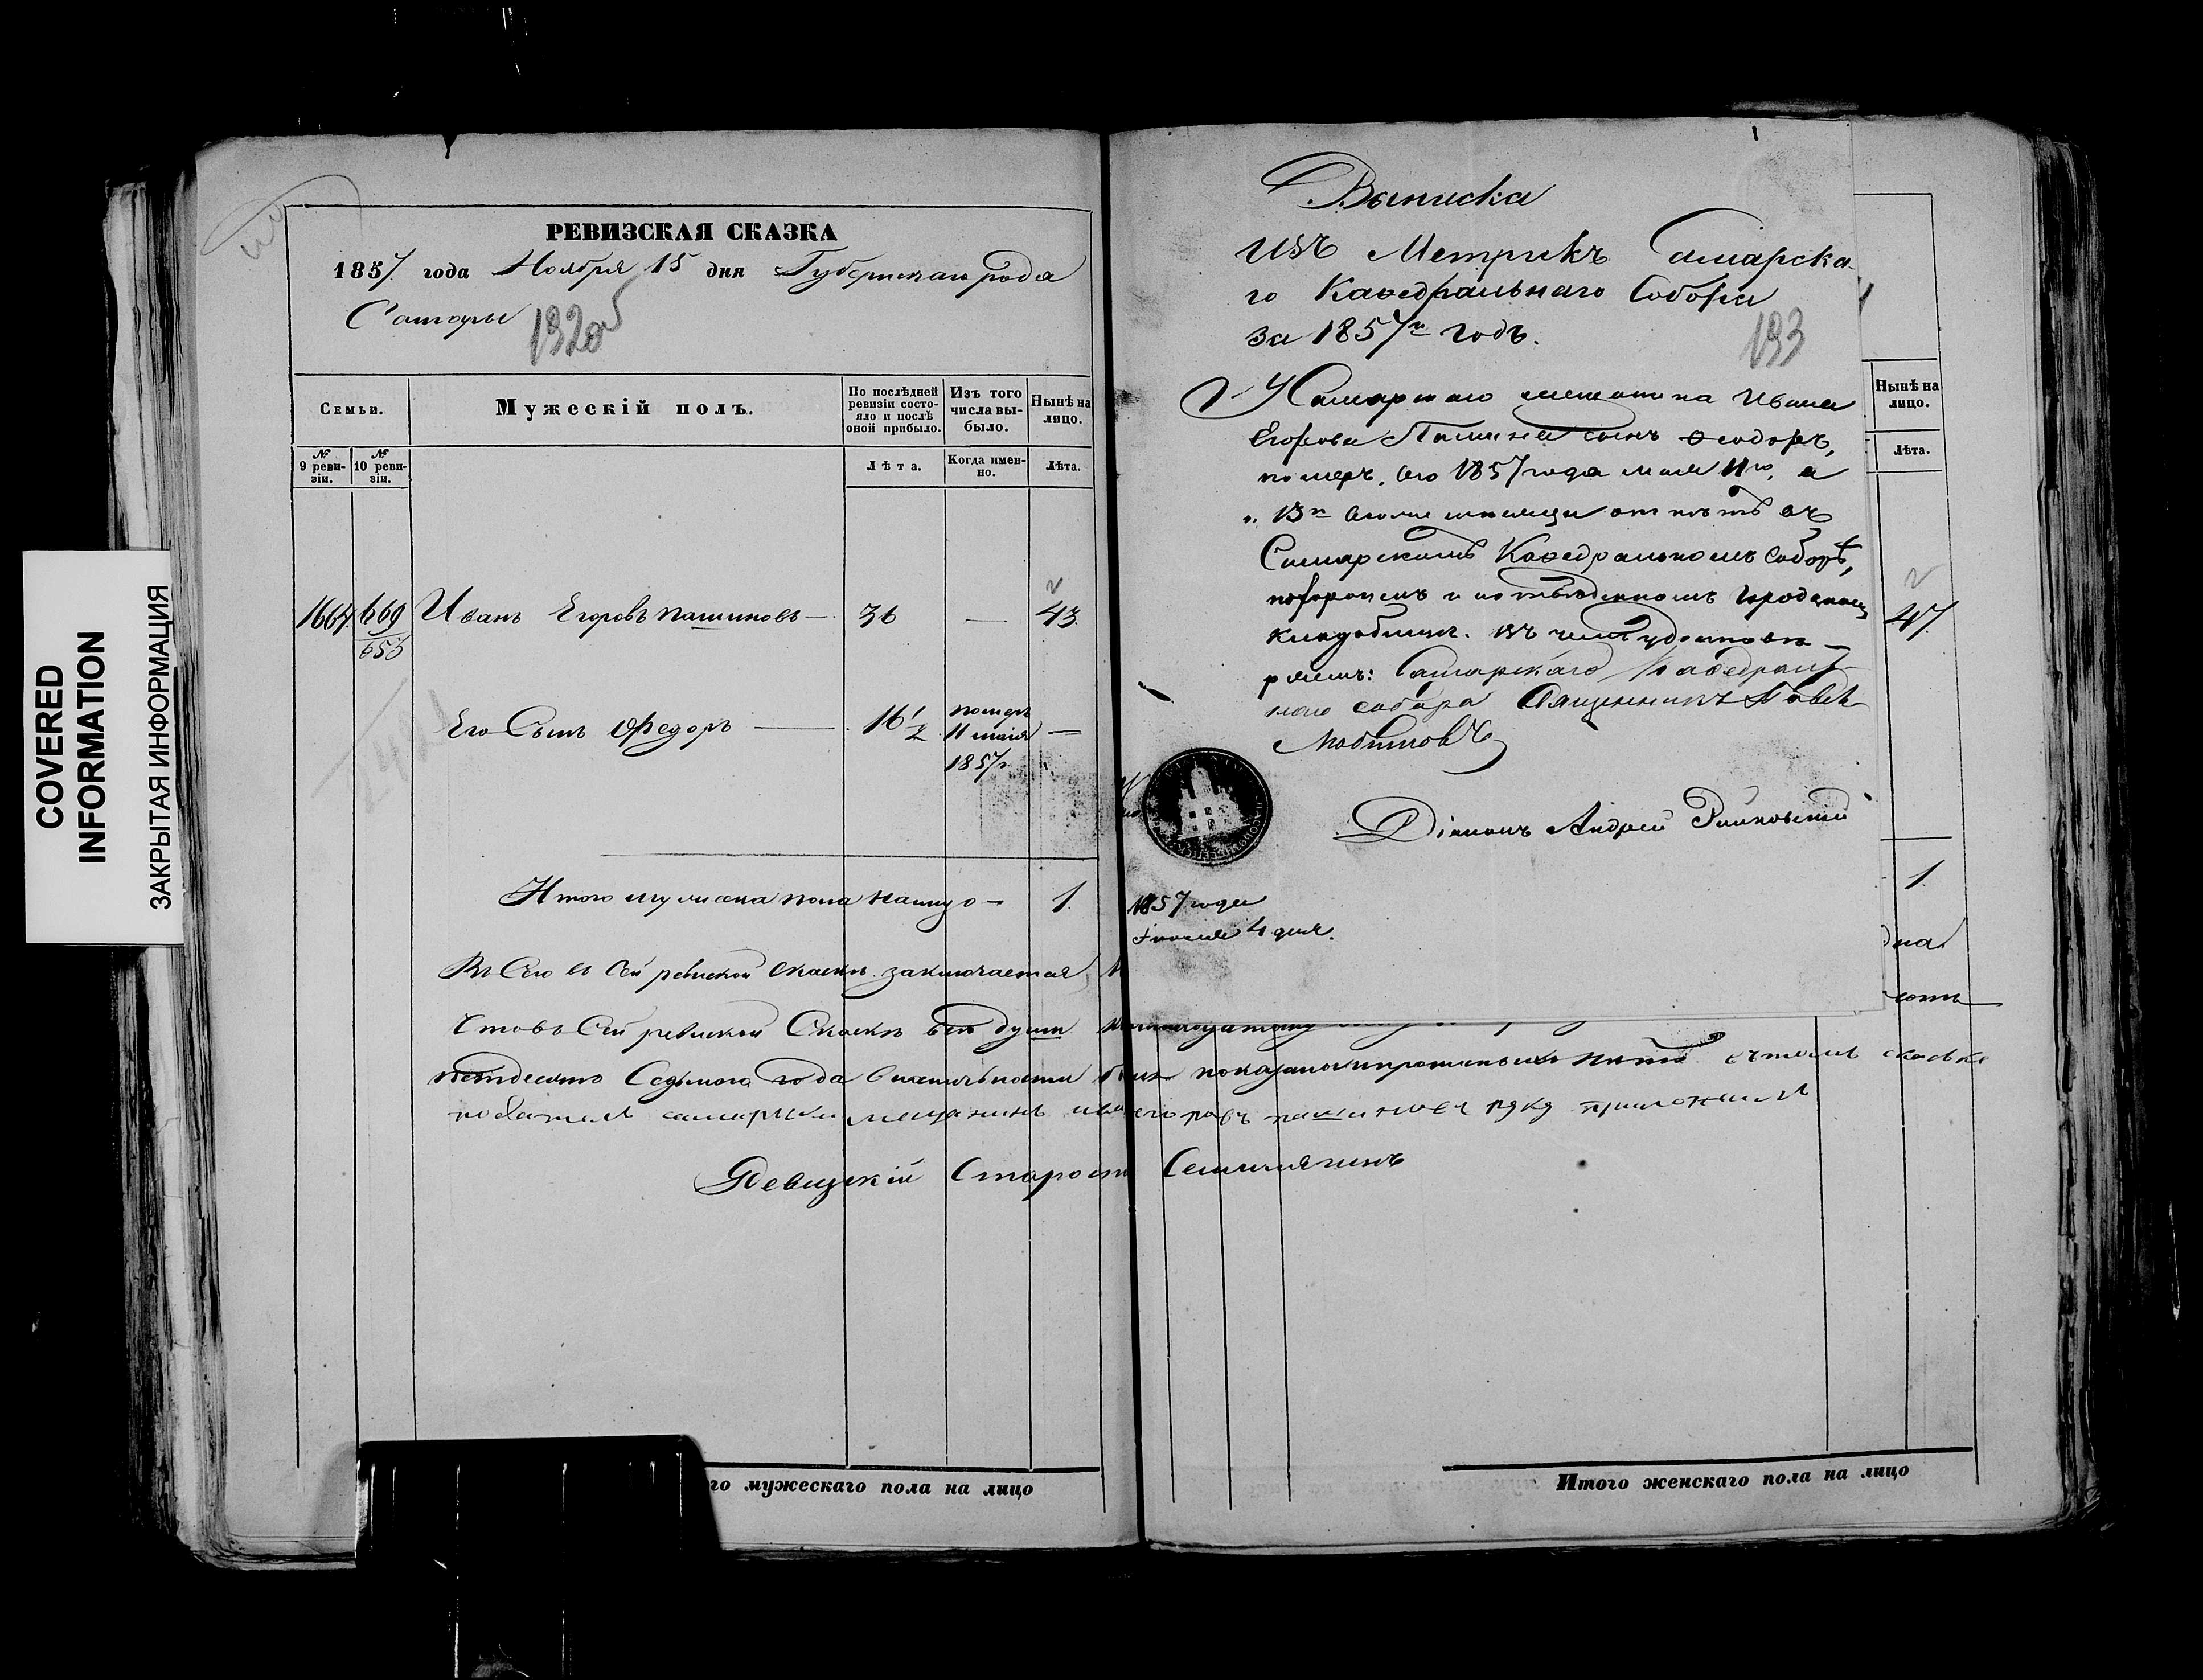 COVERED
INFORMATION
ЗАКРЫТАЯ ИНФОРМАЦИЯ
РЕВИЗСКАЯ СКАЗКА
1857 года Ноября 15 дня Губернскаго рода
Самары
1920
Семьи.
Мужескій полъ.
По послѣдней ревизіи состояло и послѣ оной прибыло.
Изъ того числа выбыло.
Нынѣ на лицо.
№ 9 ревизіи.
№ 10 ревизіи.
Лѣта.
Когда именно.
Лѣта.
1664 669 Иванъ Егоровъ пашиновъ — 36 — 43
653
Его Сынъ Федоръ — 16½ померъ 11 маія 1857г. —
Итого мужеска пола налицо — 1.
Въ Сей ревиской скаскѣ заключается
Что въ Сей ревиской Скаскѣ все души
пятдесятъ Седьмого года показаны и прописныхъ нѣтъ в томъ скаске
подателъ самарски мещанинъ иванъ егоровъ пашиновъ руку приложилъ
Ревизскій Староста
го мужескаго пола на лицо
Выписка
изъ Метрикъ Самарска-
го Каѳедральнаго Собора
за 1857й годъ.
193
У Самарскаго мещанина Ивана
Егорова Пашина сынъ Ѳеодоръ,
померъ. сего 1857 года мая 11го, а
13го отпѣтъ въ
Самарскомъ Каѳедральномъ Соборѣ,
похороненъ на городскомъ
кладбищѣ. въ чемъ удостовѣ-
ряемъ: Самарскаго Каѳедраль-
наго собора Священникъ
Любимовъ
Діаконъ Андрей
1857 года
4 дня.
Нынѣ на лицо.
Лѣта.
47.
1.
Итого женскаго пола на лицо